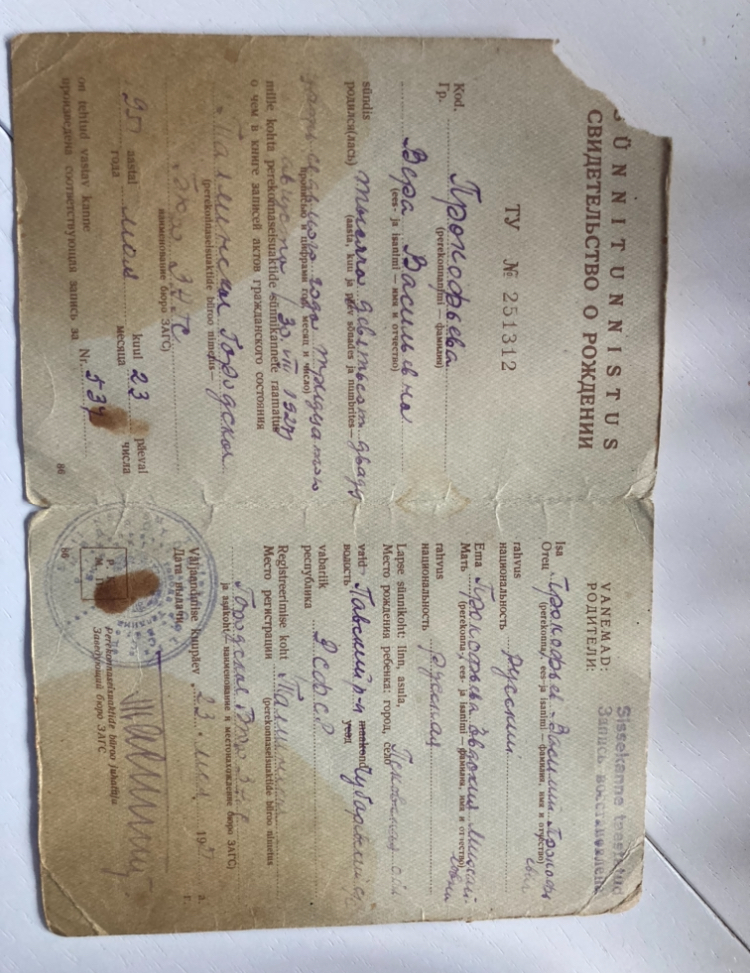 SÜNNITUNNISTUS
СВИДЕТЕЛЬСТВО О РОЖДЕНИИ
ТУ № 251312
Kod.
Гр. Прокофьева
(perekonnanimi — фамилия)
Вера Васильевна
(ees- ja isanimi — имя и отчество)
sündis
родился(лась) тысяча девятьсот двадц
(aasta, kuu ja päev sõnades ja numbrites—
седьмого года тридцатого
прописью и цифрами год, месяц и число)
августа / 30. VIII 1927
mille kohta perekonnaseisuaktide sünnikannete raamatus
о чем в книге записей актов гражданского состояния
Таллинское Городское
(perekonnaseisuaktide büroo nimetus—
бюро ЗАГС
наименование бюро ЗАГС)
aastal мая kuul 23 päeval
года месяца числа
on tehtud vastav kanne
произведена соответствующая запись за Nr.
86
Sissekanne taastatud
Запись восстановлена
VANEMAD:
РОДИТЕЛИ:
Isa
Отец Прокофьев Василий
(perekonna-, ees- ja isanimi — фамилия, имя и отчество)
rahvus
национальность русский
Ema
Мать Прокофьева Евдокия
(perekonna-, ees- ja isanimi — фамилия, имя и отчество)
rahvus
национальность русская
Lapse sünnikoht: linn, asula,
Место рождения ребенка: город, село Псковская
vald maakond
волость уезд
vabariik
республика РСФСР
Registreerimise koht
Место регистрации Таллинское
(perekonnaseisuaktide büroo nimetus
Городское бюро ЗАГС
ja asukoht — наименование и местонахождение бюро ЗАГС)
Väljaandmise kuupäev
Дата выдачи 23 мая 19 a.
г.
Perekonnaseisuaktide büroo juhataja
Заведующий бюро ЗАГС
86